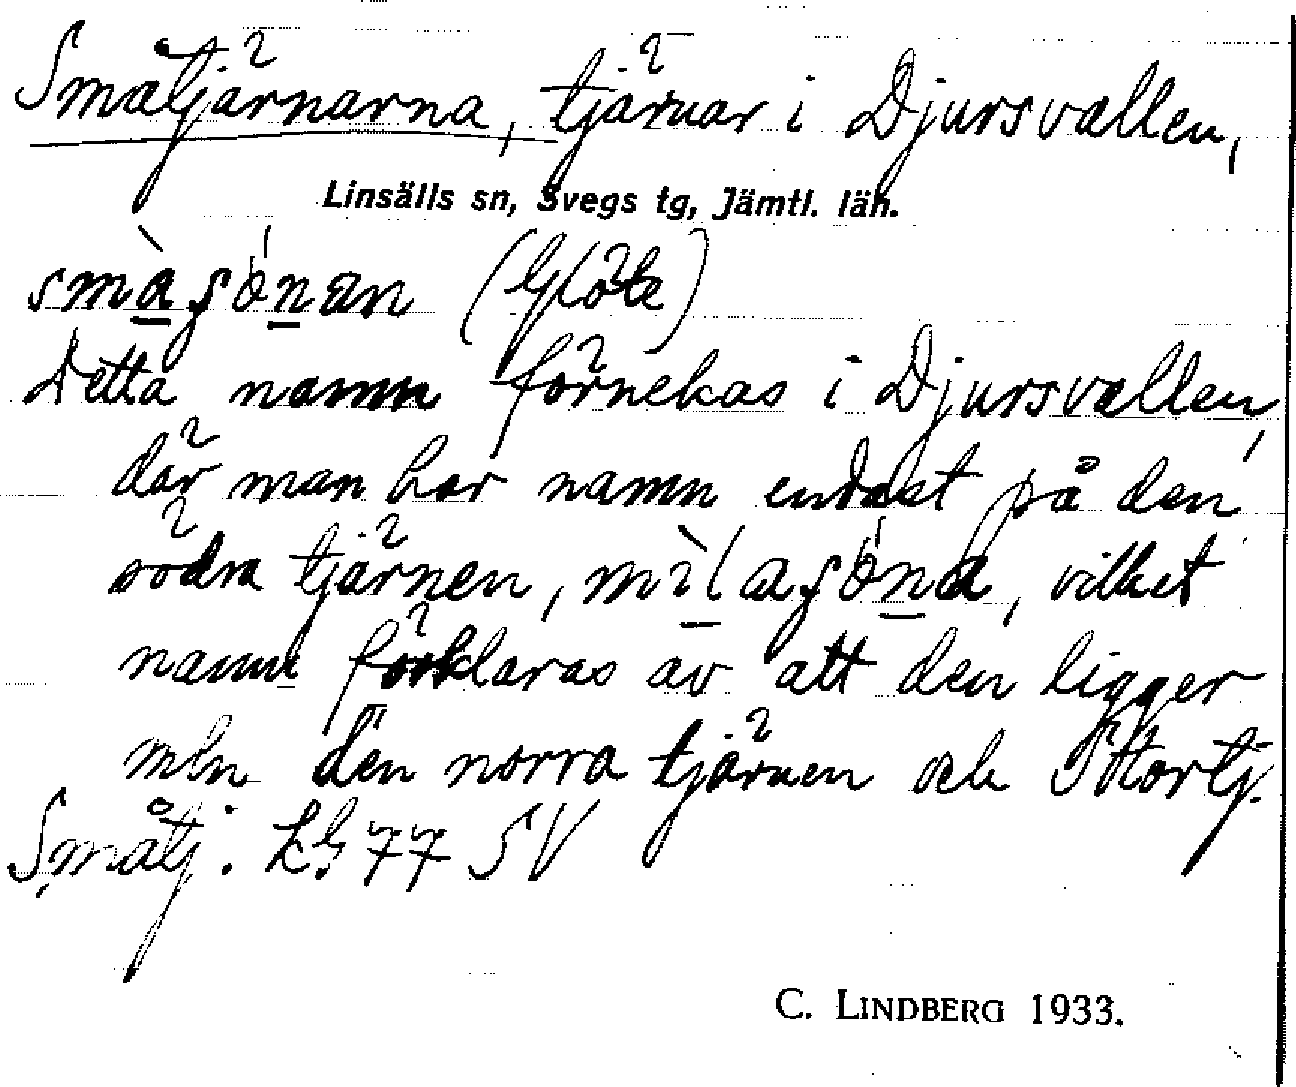 Småtjärnarna, tjärnar i Djursvallen,
Linsälls sn, Svegs tg, Jämtl. län.
(Glöte)
Detta namn förnekas i Djursvallen,
där man har namn endast på den
södra tjärnen, vilket
namn förklaras av att den ligger
mln den norra tjärnen och Stortj.
Småtj. LG 77 SV
C. LINDBERG 1933.